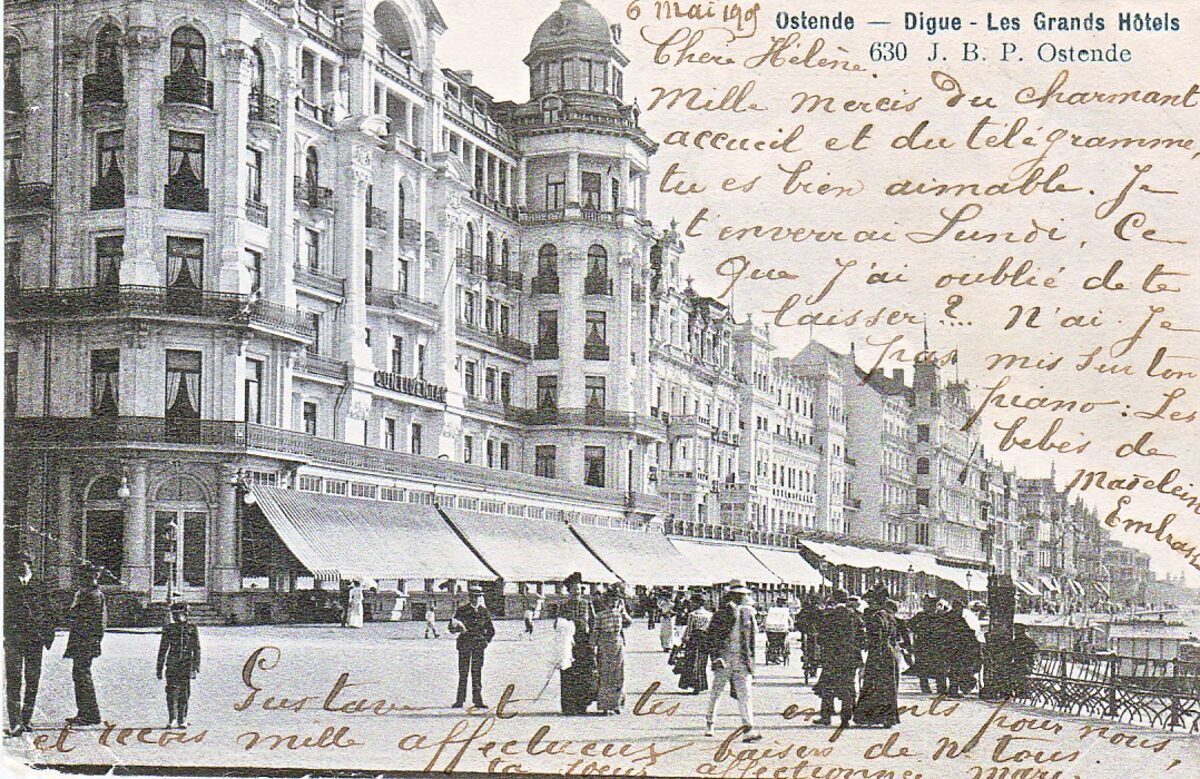 6 Mai 190
Ostende — Digue - Les Grands Hôtels
630 J. B. P. Ostende
Chère Hélène.
Mille mercis du charmant
accueil et du télégramme,
tu es bien aimable. Je
t'enverrai Lundi, Ce
Que J'ai oublié de te
laisser?... N'ai Je
pas mis sur ton
piano: Les
bébés de
Madeleine
Embras
CONTINENTAL
Gustave et tes enfants pour nous,
et reçois mille affectueux baisers de Ns. tous.
ta soeur affectionnée